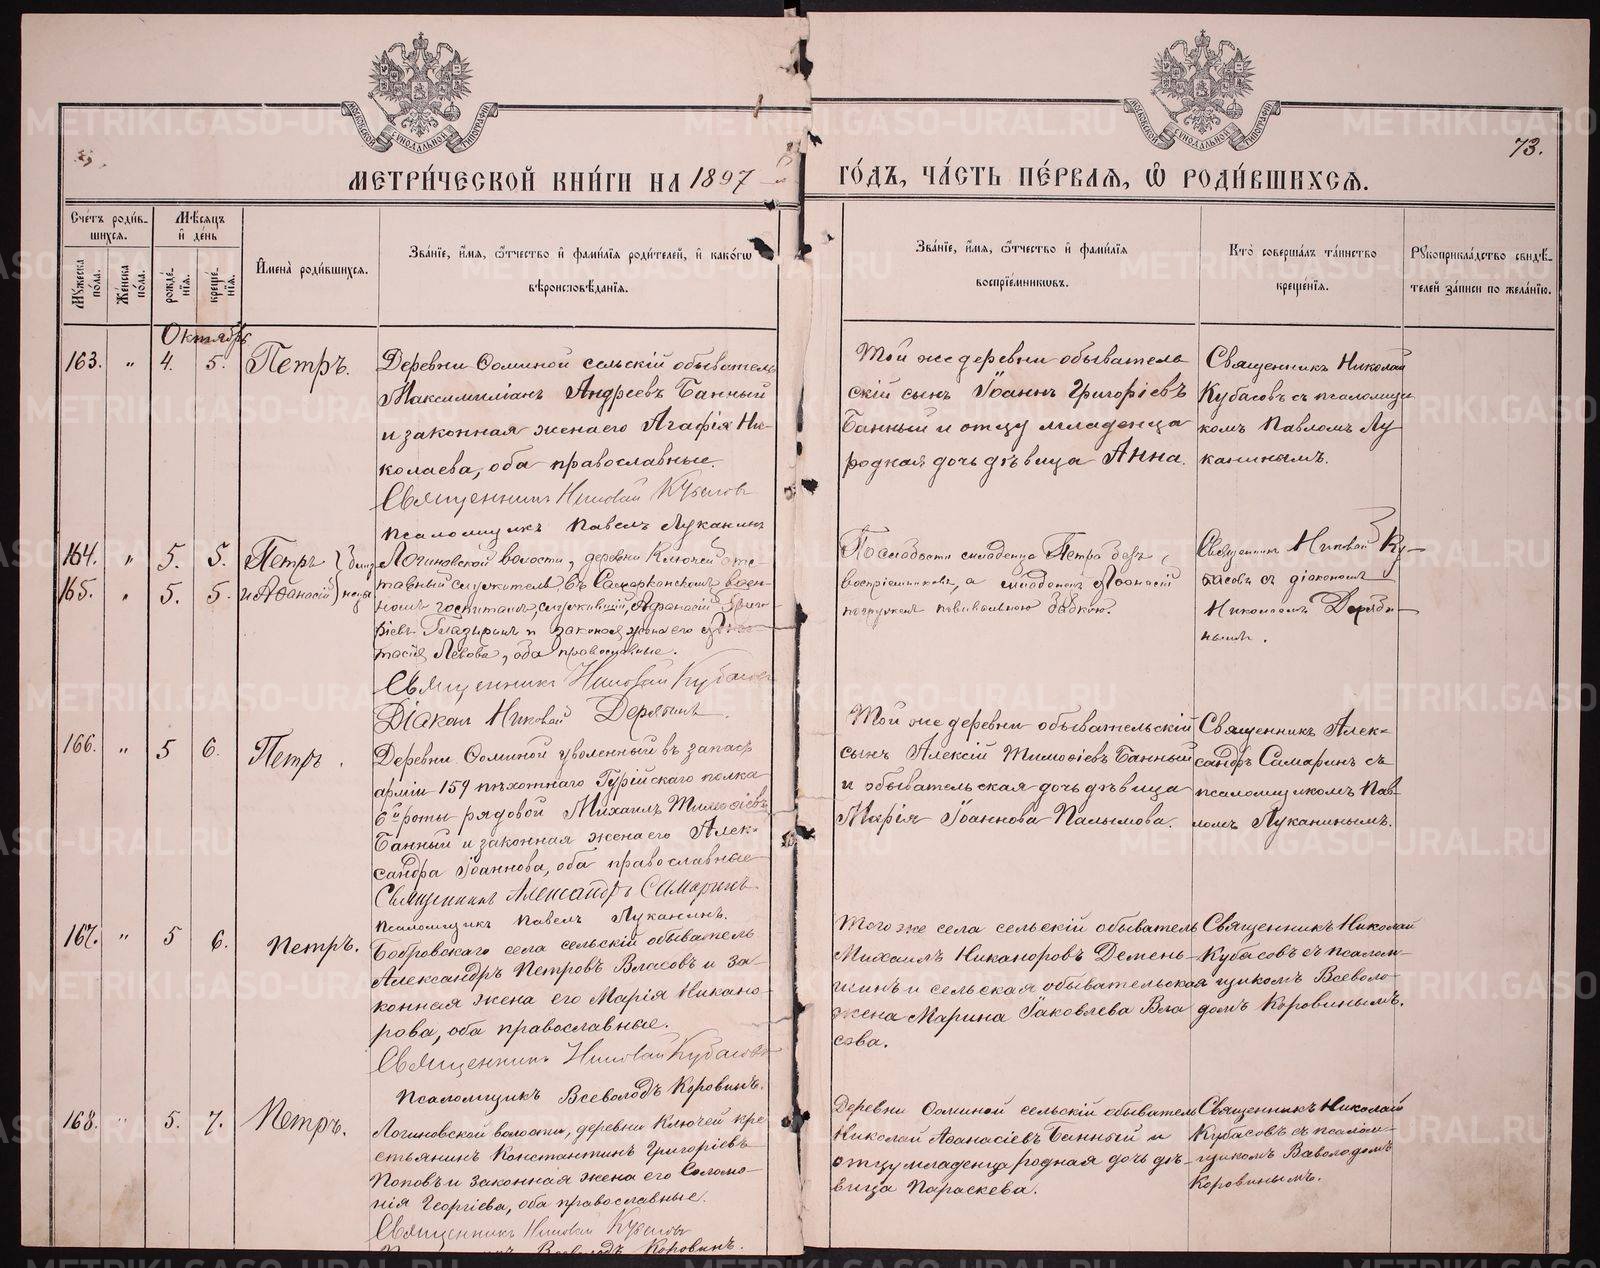 МОСКОВСКОЙ СѴНОДАЛЬНОЙ ТИПОГРАФІИ
МОСКОВСКОЙ СѴНОДАЛЬНОЙ ТИПОГРАФІИ
73.
МЕТРИ́ЧЕСКОЙ КНИ́ГИ НА 1897 ГО́ДЪ, ЧА́СТЬ ПЕ́РВАЯ, Ѡ РОДИ́ВШИХСЯ.
Сче́тъ роди́в-
шихся.
Мѣ́сяцъ
и҆ де́нь
Мꙋжеска по́ла.
Же́нска по́ла.
рожде́-нїя.
креще́-нїя.
И҆мена̀ роди́вшихся.
Зва́нїе, и҆́мя, ѻ҆́тчество и҆ фами́лїя роди́телей, и҆ како́гѡ
вѣроисповѣ́данїя.
Зва́нїе, и҆́мя, ѻ҆́тчество и҆ фами́лїя
воспрїе́мникѡвъ.
Кто̀ соверша́лъ та́инство
креще́нїя.
Рꙋкоприкла́дство свидѣ́-
телей за́писи по жела́нїю.
Октябрь
163. " 4. 5. Петръ.
Деревни Ѳоминой сельскій обыватель
Максимиліанъ Андреевъ Банный
и законная жена его Агафія Ни-
колаева, оба православные.
Священникъ Николай Кубасовъ
Псаломщикъ Павелъ Луканинъ
Той же деревни обыватель
скій сынъ Іоаннъ Григоріевъ
Банный и отцу младенца
родная дочь дѣвица Анна.
Священникъ Николай
Кубасовъ съ псаломщи
комъ Павломъ Лу
канинымъ.
164. " 5. 5. Петръ
165. " 5. 5. и Аѳанасій
близнецы
Логиновской волости, деревни Ключей отс-
тавный служитель въ Самаркандскомъ воен-
номъ госпиталѣ, служившій, Аѳанасій Григо-
ріевъ и законная жена его Анас-
тасія Львова, оба православные.
Священникъ Николай Кубасовъ
Діаконъ Николай Дерябинъ.
По слабости младенца Петра безъ
воспріемниковъ, а младенецъ Аѳанасій
погруженъ повивальною бабкою.
Священникъ Николай Ку-
басовъ съ діакономъ
Николаемъ Деряби-
нымъ.
166. " 5 6. Петръ.
Деревни Ѳоминой уволенный въ запасъ
арміи 159 пѣхотнаго Гурійскаго полка
6й роты рядовой Михаилъ Тимоѳіевъ
Банный и законная жена его Алек-
сандра Іоаннова, оба православные
Священникъ Александръ Самаринъ
Псаломщикъ Павелъ Луканинъ.
Той же деревни обывательскій
сынъ Алексій Тимоѳіевъ Банный
и обывательская дочь дѣвица
Марія Іоаннова Палымова.
Священникъ Алек-
сандръ Самаринъ съ
псаломщикомъ Пав-
ломъ Луканинымъ.
167. " 5 6. Петръ.
Бобровскаго села сельскій обыватель
Александръ Петровъ Власовъ и за
конная жена его Марія Никано-
рова, оба православные.
Священникъ Николай Кубасовъ
Псаломщикъ Всеволодъ Коровинъ.
Того же села сельскій обыватель
Михаилъ Никаноровъ Демень-
шинъ и сельская обывательская
жена Марина Іаковлева Вла
сова.
Священникъ Николай
Кубасовъ съ псалом-
щикомъ Всеволо-
домъ Коровинымъ.
168. " 5. 7. Петръ.
Логиновской волости, деревни Ключей кре
стьянинъ Константинъ Григоріевъ
Поповъ и законная жена его Соломо-
нія Георгіева, оба православные.
Священникъ Николай Кубасовъ
Псаломщикъ Всеволодъ Коровинъ.
Деревни Ѳоминой сельскій обыватель
Николай Аѳанасіевъ Банный и
отцу младенца родная дочь дѣ-
вица Параскева.
Священникъ Николай
Кубасовъ съ псалом-
щикомъ Вавологомъ
Коровинымъ.
METRIKI.GASO-URAL.RU